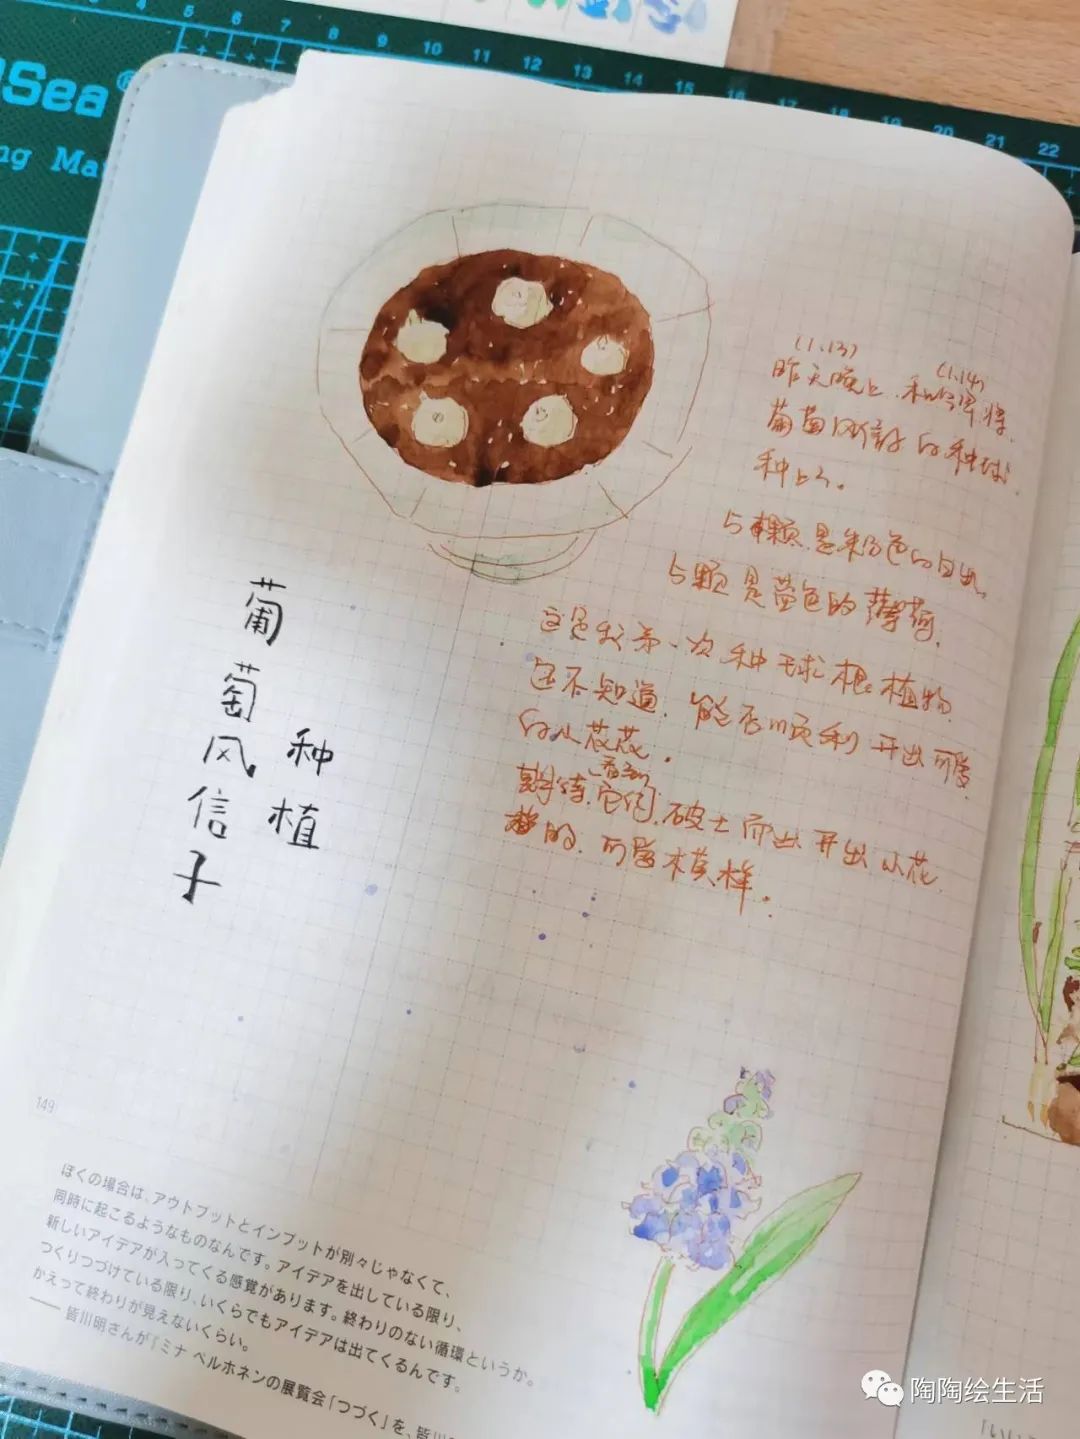 Sea®
ng Ma
4 5 6 7 8 9 10 11 12 13 14 15 16 17 18 19 20 21 22
(1.13)
(1.14)
昨天晚上,和
葡萄风信子的种球
种上了。
5颗是粉色的日出。
5颗是蓝色的薄荷,
这是我第一次种球根植物
还不知道,能否顺利开出可爱
的小花花。
看到
期待,它们,破土而出开出小花
的,可爱模样。
葡萄风信子
种植
149
ぼくの場合は、アウトプットとインプットが別々じゃなくて、
同時に起こるようなものなんです。アイデアを出している限り、
新しいアイデアが入ってくる感覚があります。終わりのない循環というか。
つくりつづけている限り、いくらでもアイデアは出てくるんです。
かえって終わりが見えないくらい。
——皆川明さんが「ミナ ペルホネンの展覧会「つづく」を、皆川
「いい
陶陶绘生活